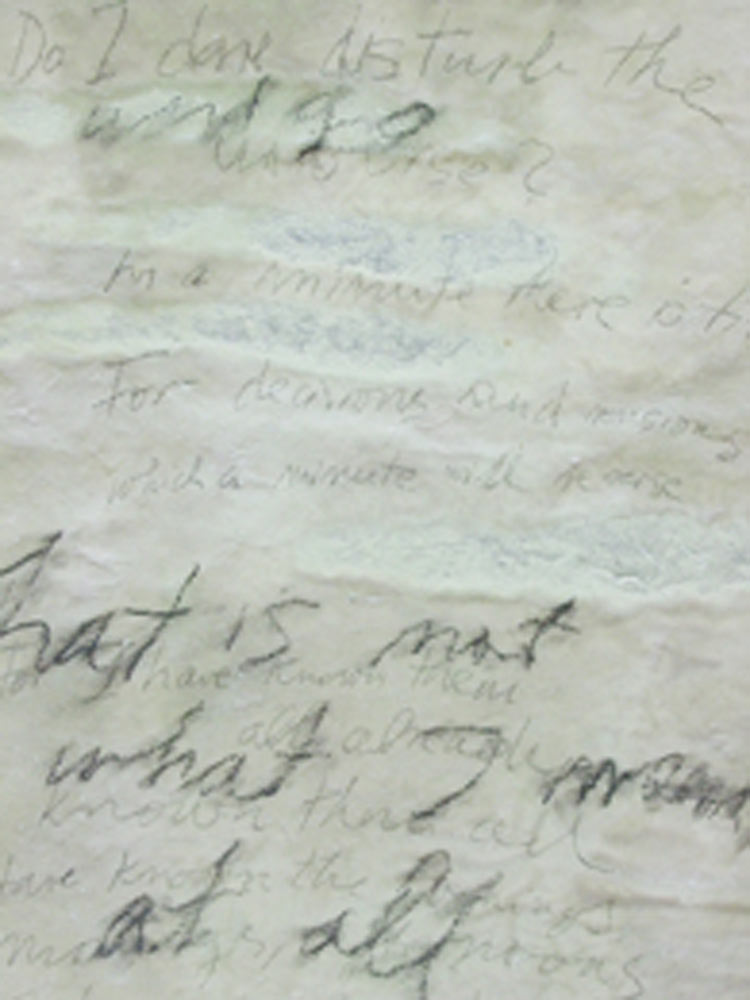 Do I dare disturb the
and go
universe?
In a minute there is
For decisions and revisions
which a minute will reverse
hat is not
for I have known them
all already
what I mean
known them all
have known the
at all